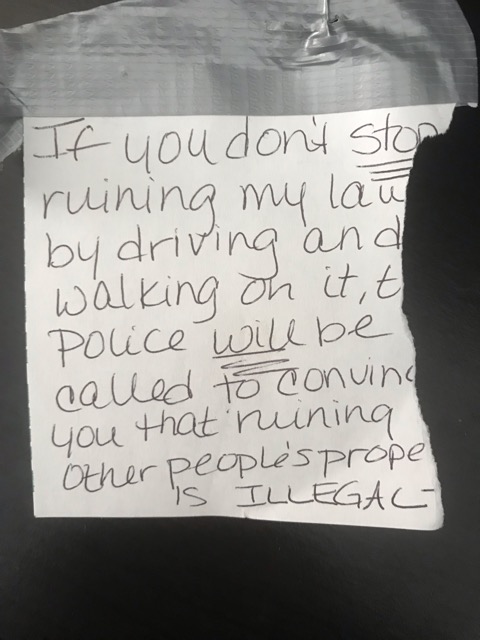 If you don't stop
ruining my law
by driving and
walking on it, t
police will be
called to convinc
you that ruining
other people's prope
IS ILLEGAL